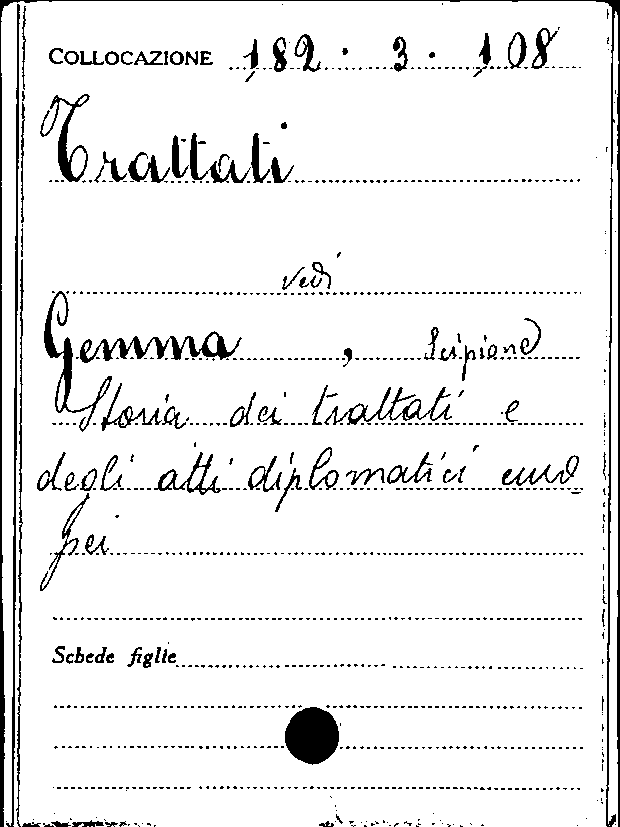 COLLOCAZIONE 182 · 3 · 108
Trattati
vedi
Gemma, Scipione
Storia dei trattati e
degli atti diplomatici euro-
pei
Schede figlie